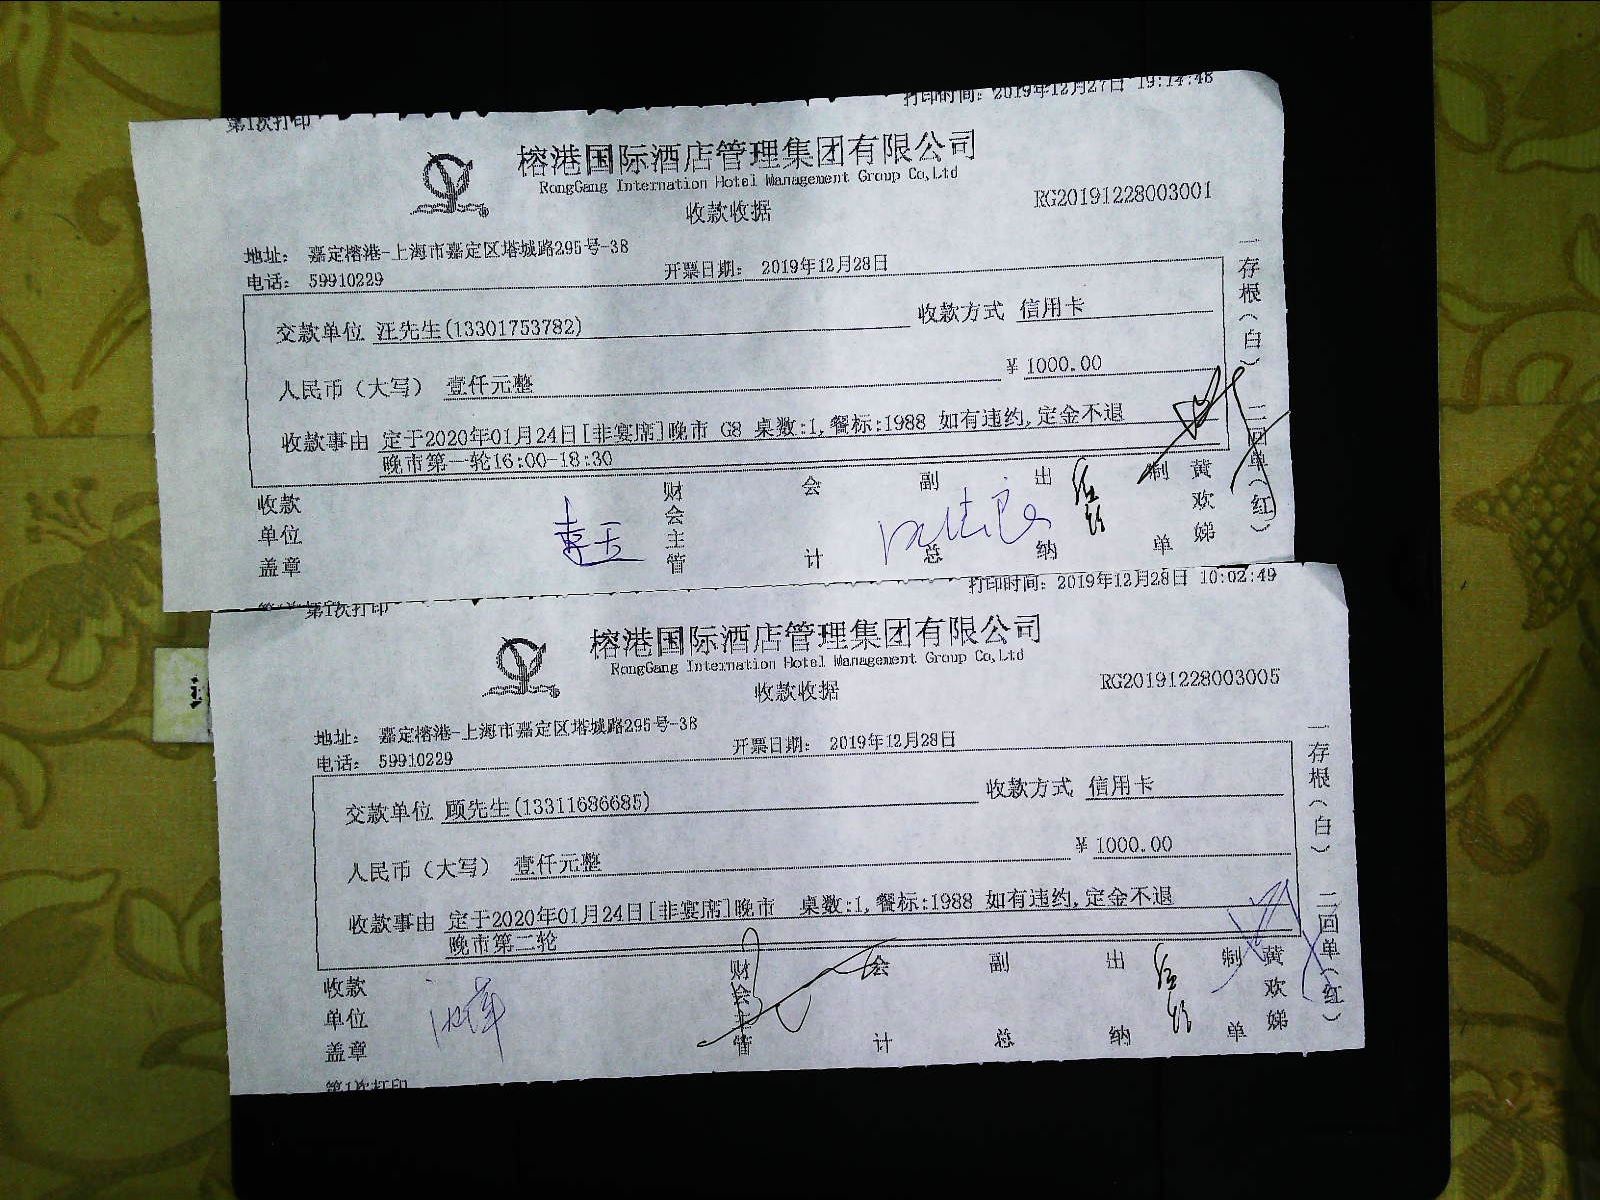 第1次打印
打印时间: 2019年12月27日 19:14:48
榕港国际酒店管理集团有限公司
RongGang Internation Hotel Management Group Co,Ltd
收款收据
RG20191228003001
地址: 嘉定榕港-上海市嘉定区塔城路295号-3B
电话: 59910229
开票日期: 2019年12月28日
交款单位 汪先生(13301753782) 收款方式 信用卡
人民币（大写） 壹仟元整 ¥ 1000.00
收款事由 定于2020年01月24日[非宴席]晚市 G8 桌数:1,餐标:1988 如有违约,定金不退
晚市第一轮16:00-18:30
收款单位盖章 财会主管 会计 副总 出纳 制单 黄欢娣
一存根(白) 二回单(红)
第1次打印
打印时间: 2019年12月28日 10:02:49
榕港国际酒店管理集团有限公司
RongGang Internation Hotel Management Group Co,Ltd
收款收据
RG20191228003005
地址: 嘉定榕港-上海市嘉定区塔城路295号-3B
电话: 59910229
开票日期: 2019年12月28日
交款单位 顾先生(13311686685) 收款方式 信用卡
人民币（大写） 壹仟元整 ¥ 1000.00
收款事由 定于2020年01月24日[非宴席]晚市 桌数:1,餐标:1988 如有违约,定金不退
晚市第二轮
收款单位盖章 财会主管 会计 副总 出纳 制单 黄欢娣
一存根(白) 二回单(红)
第1次打印